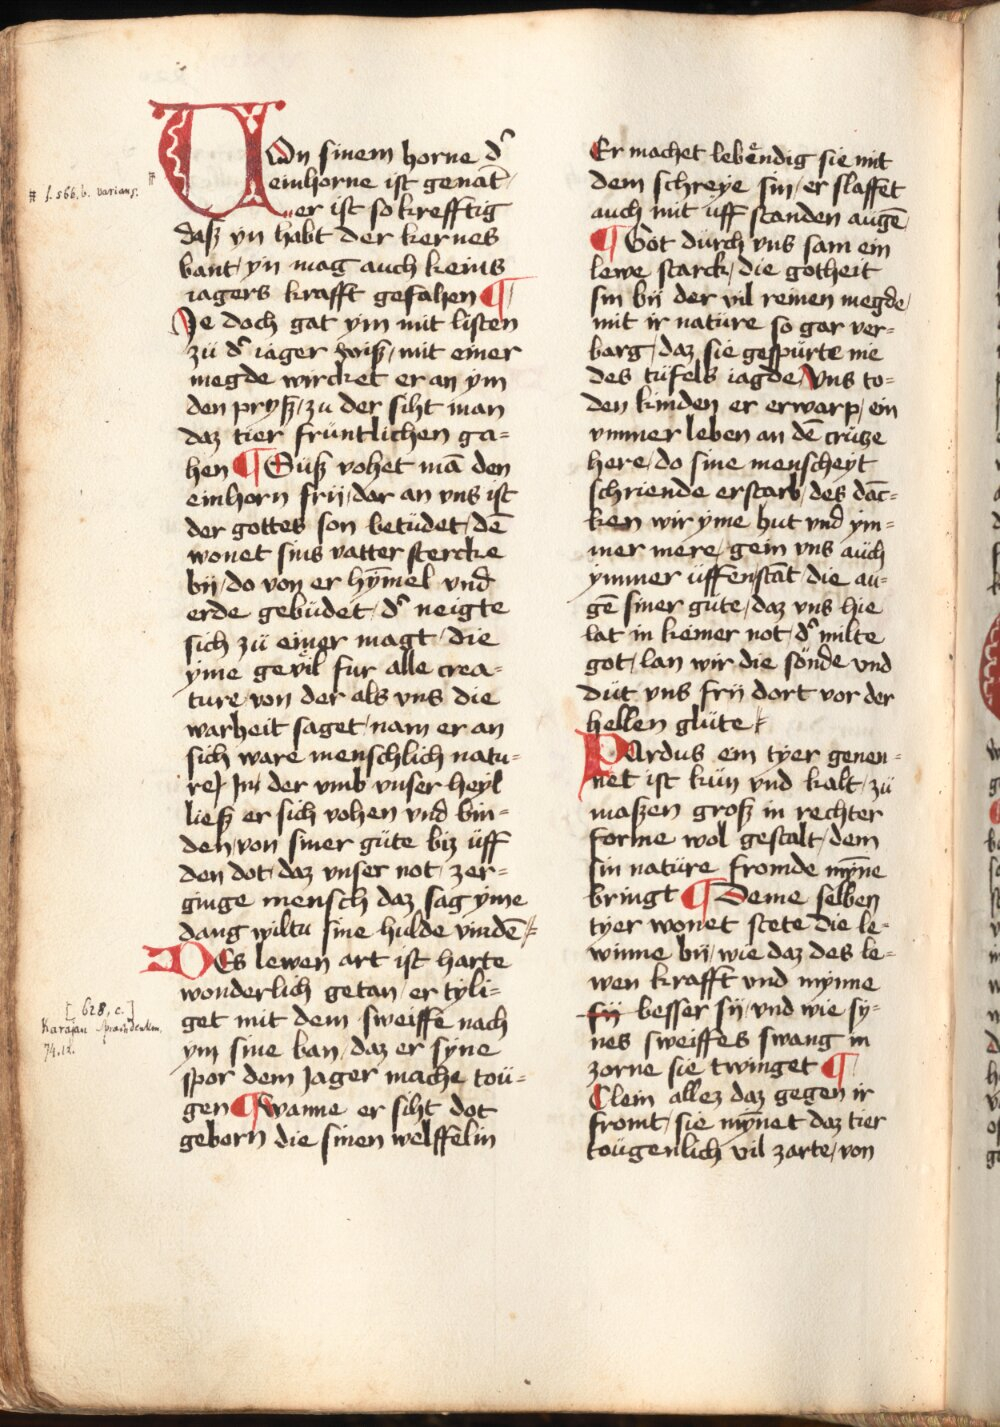 # f. 566, b. varians.
VOn sinem horne d͛
einhorne ist genāt /
er ist so krefftig
dasz yn habt der kernes
bant / yn mag auch keins
iagers krafft gefahen ¶
Je doch gat ym mit listen
zü d͛ iäger / mit einer
megde wircket er an ym
den prysz / zu der siht man
daz tier früntlichen ga=
hen ¶ Süsz vohet mā den
einhorn frij / dar an vns ist
der gottes son betüdet / dē
wonet sins vatter stercke
bij / do von er hȳmel vnd
erde gebüdet / d͛ neigte
sich zü einer magt / die
yme geviͤl fur alle crea=
ture von der als vns die
warheit saget / nam er an
sich ware menschlich natu=
re / Jn der vmb vnser heyl
liesz er sich vohen vnd bin=
den / von siner güte biz üff
den dot / daz vnser not / zer=
ginge mensch daz sag yme
dang wiltu sine hulde vindē
[628, c.]
Karajan Sprachdenkm.
74.12.
DEs lewen art ist harte
wonderlich getan / er tyli=
get mit dem sweiffe nach
ym sine ban / daz er syne
spor dem Jager mache toü=
gen ¶ wanne er siht dot
geborn die sinen welffelin
Er machet lebeͤndig sie mit
dem schreye sin / er slaffet
auch mit üff standen augē
¶ Got durch vns sam ein
lewe starck / die gotheit
sin bij der vil reinen megde /
mit ir natüre so gar ver=
barg / daz sie gespürte nie
des tüfels iagde / Vns to=
den kinden er erwarp / ein
ymmer leben an dē crütze
here / do sine menscheyt
schriende erstarb / des dāc=
ken wir yme hut vnd ym=
mer mere / gein vns aüch
ymmer üffenstāt / die au=
gē siner güte / daz vns hie
lat in keiner not / d͛ milte
got / lan wir die sönde vnd
düt vns frij dort vor der
hellen glüte /
PArdus ein tyer genen=
net ist kün vnd kalt / zü
maszen grosz in rechter
forme wol gestalt / dem
sin natüre fromde mȳne
bringt ¶ Deme selben
tyer wonet stete die le=
winne bij / wie daz des le=
wen krafft vnd mynne
sij besser sij / vnd wie sy=
nes sweiffes swang in
zorne sie twinget ¶
Clein allez daz gegen ir
fromt / sie mȳnet daz tier
toügenlich vil zarte / von